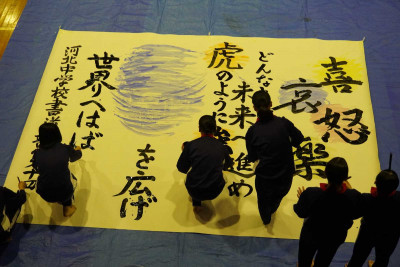 喜怒
哀楽
どんな未来へ
虎のように進め
を広げ
世界へはば
河北中学校書